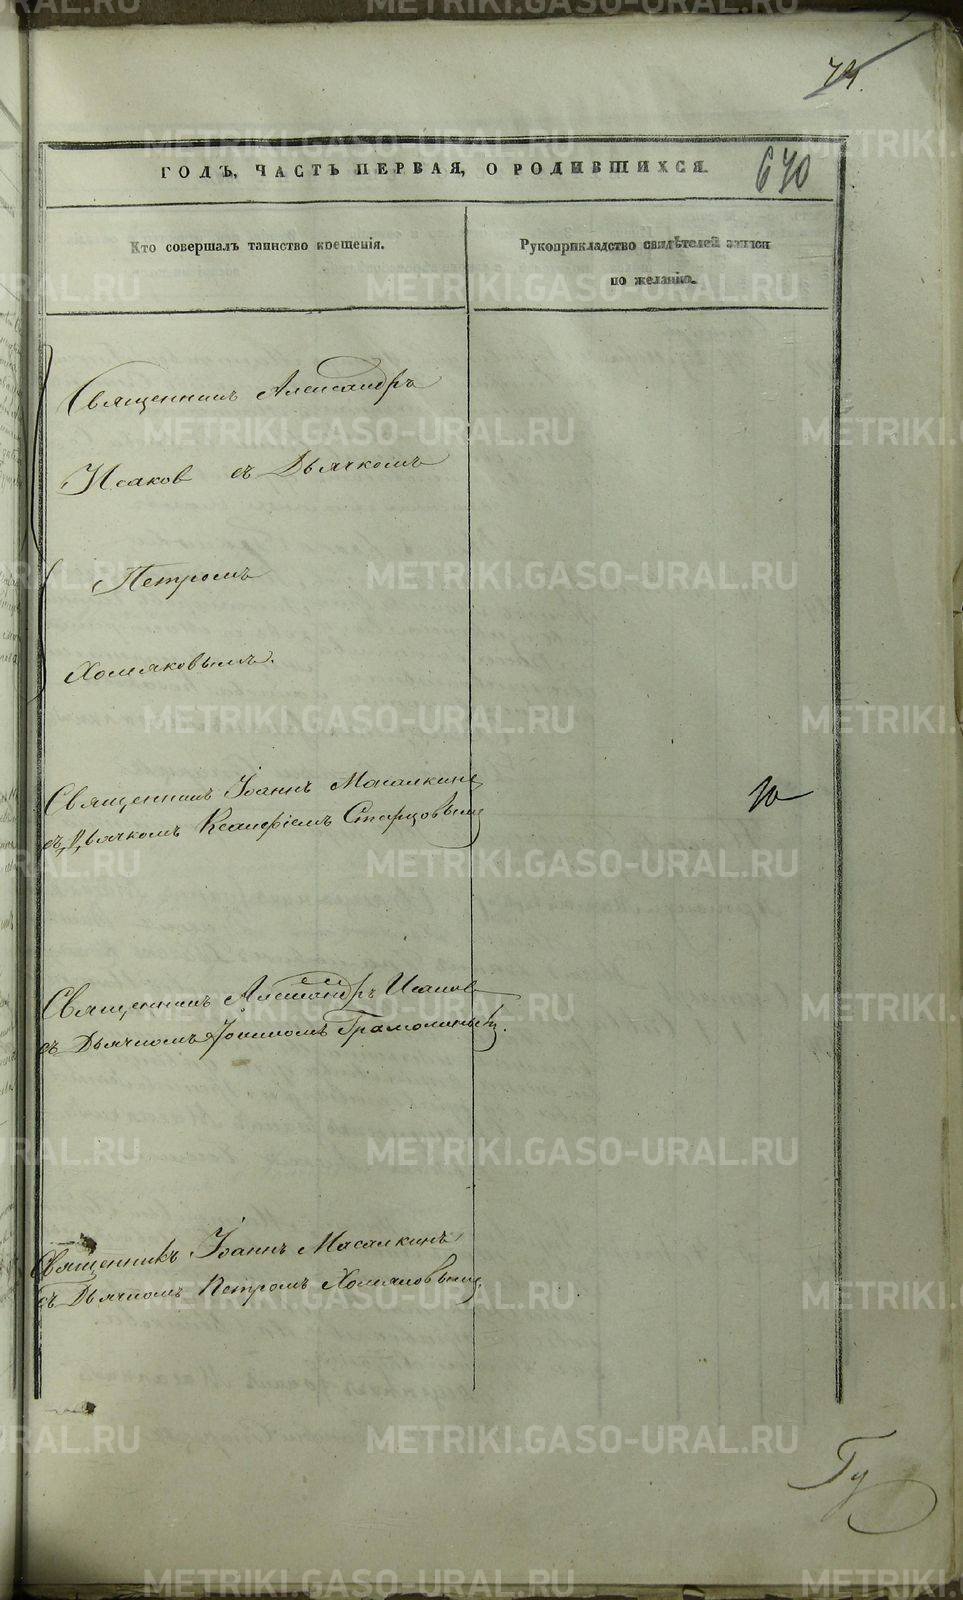 74.
ГОДЪ, ЧАСТЬ ПЕРВАЯ, О РОДИВШИХСЯ.
670
Кто совершалъ таинство крещенія.
Рукоприкладство свидѣтелей записи
по желанію.
Священникъ Александръ
Исаков съ Дьячкомъ
Петромъ
Хомяковымъ.
Священникъ Іоаннъ Масалкинъ
съ Дьячкомъ Ксанфіемъ Старцовымъ
Священникъ Александръ Исаков
съ Дьячкомъ Іоанномъ
Священникъ Іоаннъ Масалкинъ
съ Дьячкомъ Петромъ Хомяковымъ
METRIKI.GASO-URAL.RU